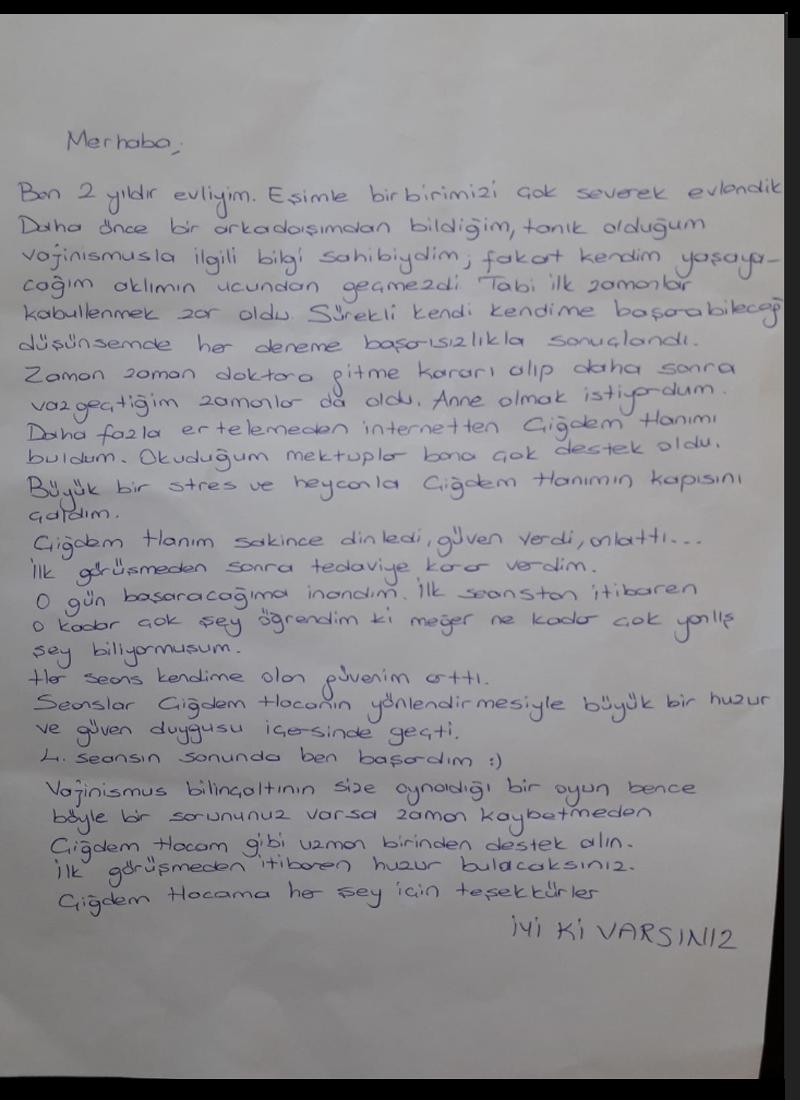 Merhaba;
Ben 2 yıldır evliyim. Eşimle birbirimizi çok severek evlendik
Daha önce bir arkadaşımdan bildiğim, tanık olduğum
vajinismusla ilgili bilgi sahibiydim; fakat kendim yaşaya-
cağım aklımın ucundan geçmezdi Tabi ilk zamanlar
kabullenmek zor oldu. Sürekli kendi kendime başarabileceği
düşünsemde her deneme başarısızlıkla sonuçlandı.
Zaman zaman doktora gitme kararı alıp daha sonra
vazgeçtiğim zamanlar da oldu. Anne olmak istiyordum.
Daha fazla ertelemeden internetten Çiğdem Hanımı
buldum. Okuduğum mektuplar bana çok destek oldu.
Büyük bir stres ve heycanla Çiğdem Hanımın kapısını
çaldım.
Çiğdem Hanım sakince dinledi, güven verdi, anlattı...
İlk görüşmeden sonra tedaviye karar verdim.
O gün başaracağıma inandım. İlk seanstan itibaren
o kadar çok şey öğrendim ki meğer ne kadar çok yanlış
şey biliyormuşum.
Her seans kendime olan güvenim arttı.
Seanslar Çiğdem Hocanın yönlendirmesiyle büyük bir huzur
ve güven duygusu içersinde geçti.
4. seansın sonunda ben başardım :)
Vajinismus bilinçaltının size oynadığı bir oyun bence
böyle bir sorununuz varsa zaman kaybetmeden
Çiğdem Hocam gibi uzman birinden destek alın.
İlk görüşmeden itibaren huzur bulacaksınız.
Çiğdem Hocama her şey için teşekkürler
İYİ Kİ VARSINIZ